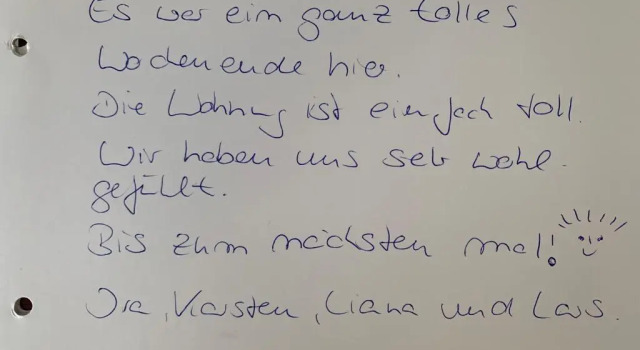 Es war ein ganz tolles
Wochenende hier.
Die Wohnung ist einfach toll.
Wir haben uns sehr wohl-
gefühlt.
Bis zum nächsten mal!
Ira, Karsten, Liana und Lars.